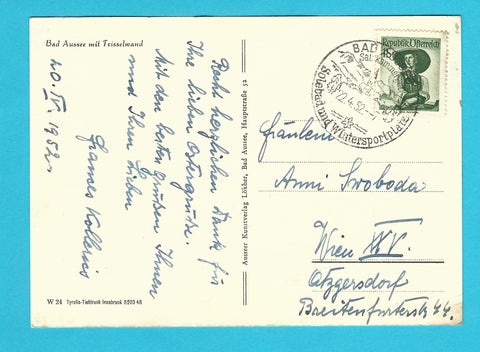 Bad Aussee mit Trisselwand
20. IV. 1952.
Recht herzlichen Dank für
Ihre lieben Ostergrüße.
Mit den besten Grüßen Ihnen
und Ihren Lieben
W 24 Tyrolia-Tiefdruck Innsbruck 5203 48
Ausseer Kunstverlag Lökher, Bad Aussee, Hauptstraße 52
BAD
22.4.52
Solebad und Wintersportplatz
Republik Österreich
Fräulein
Anni Swoboda
Wien XXV.
Atzgersdorf
Breitenfurterstr. 44.